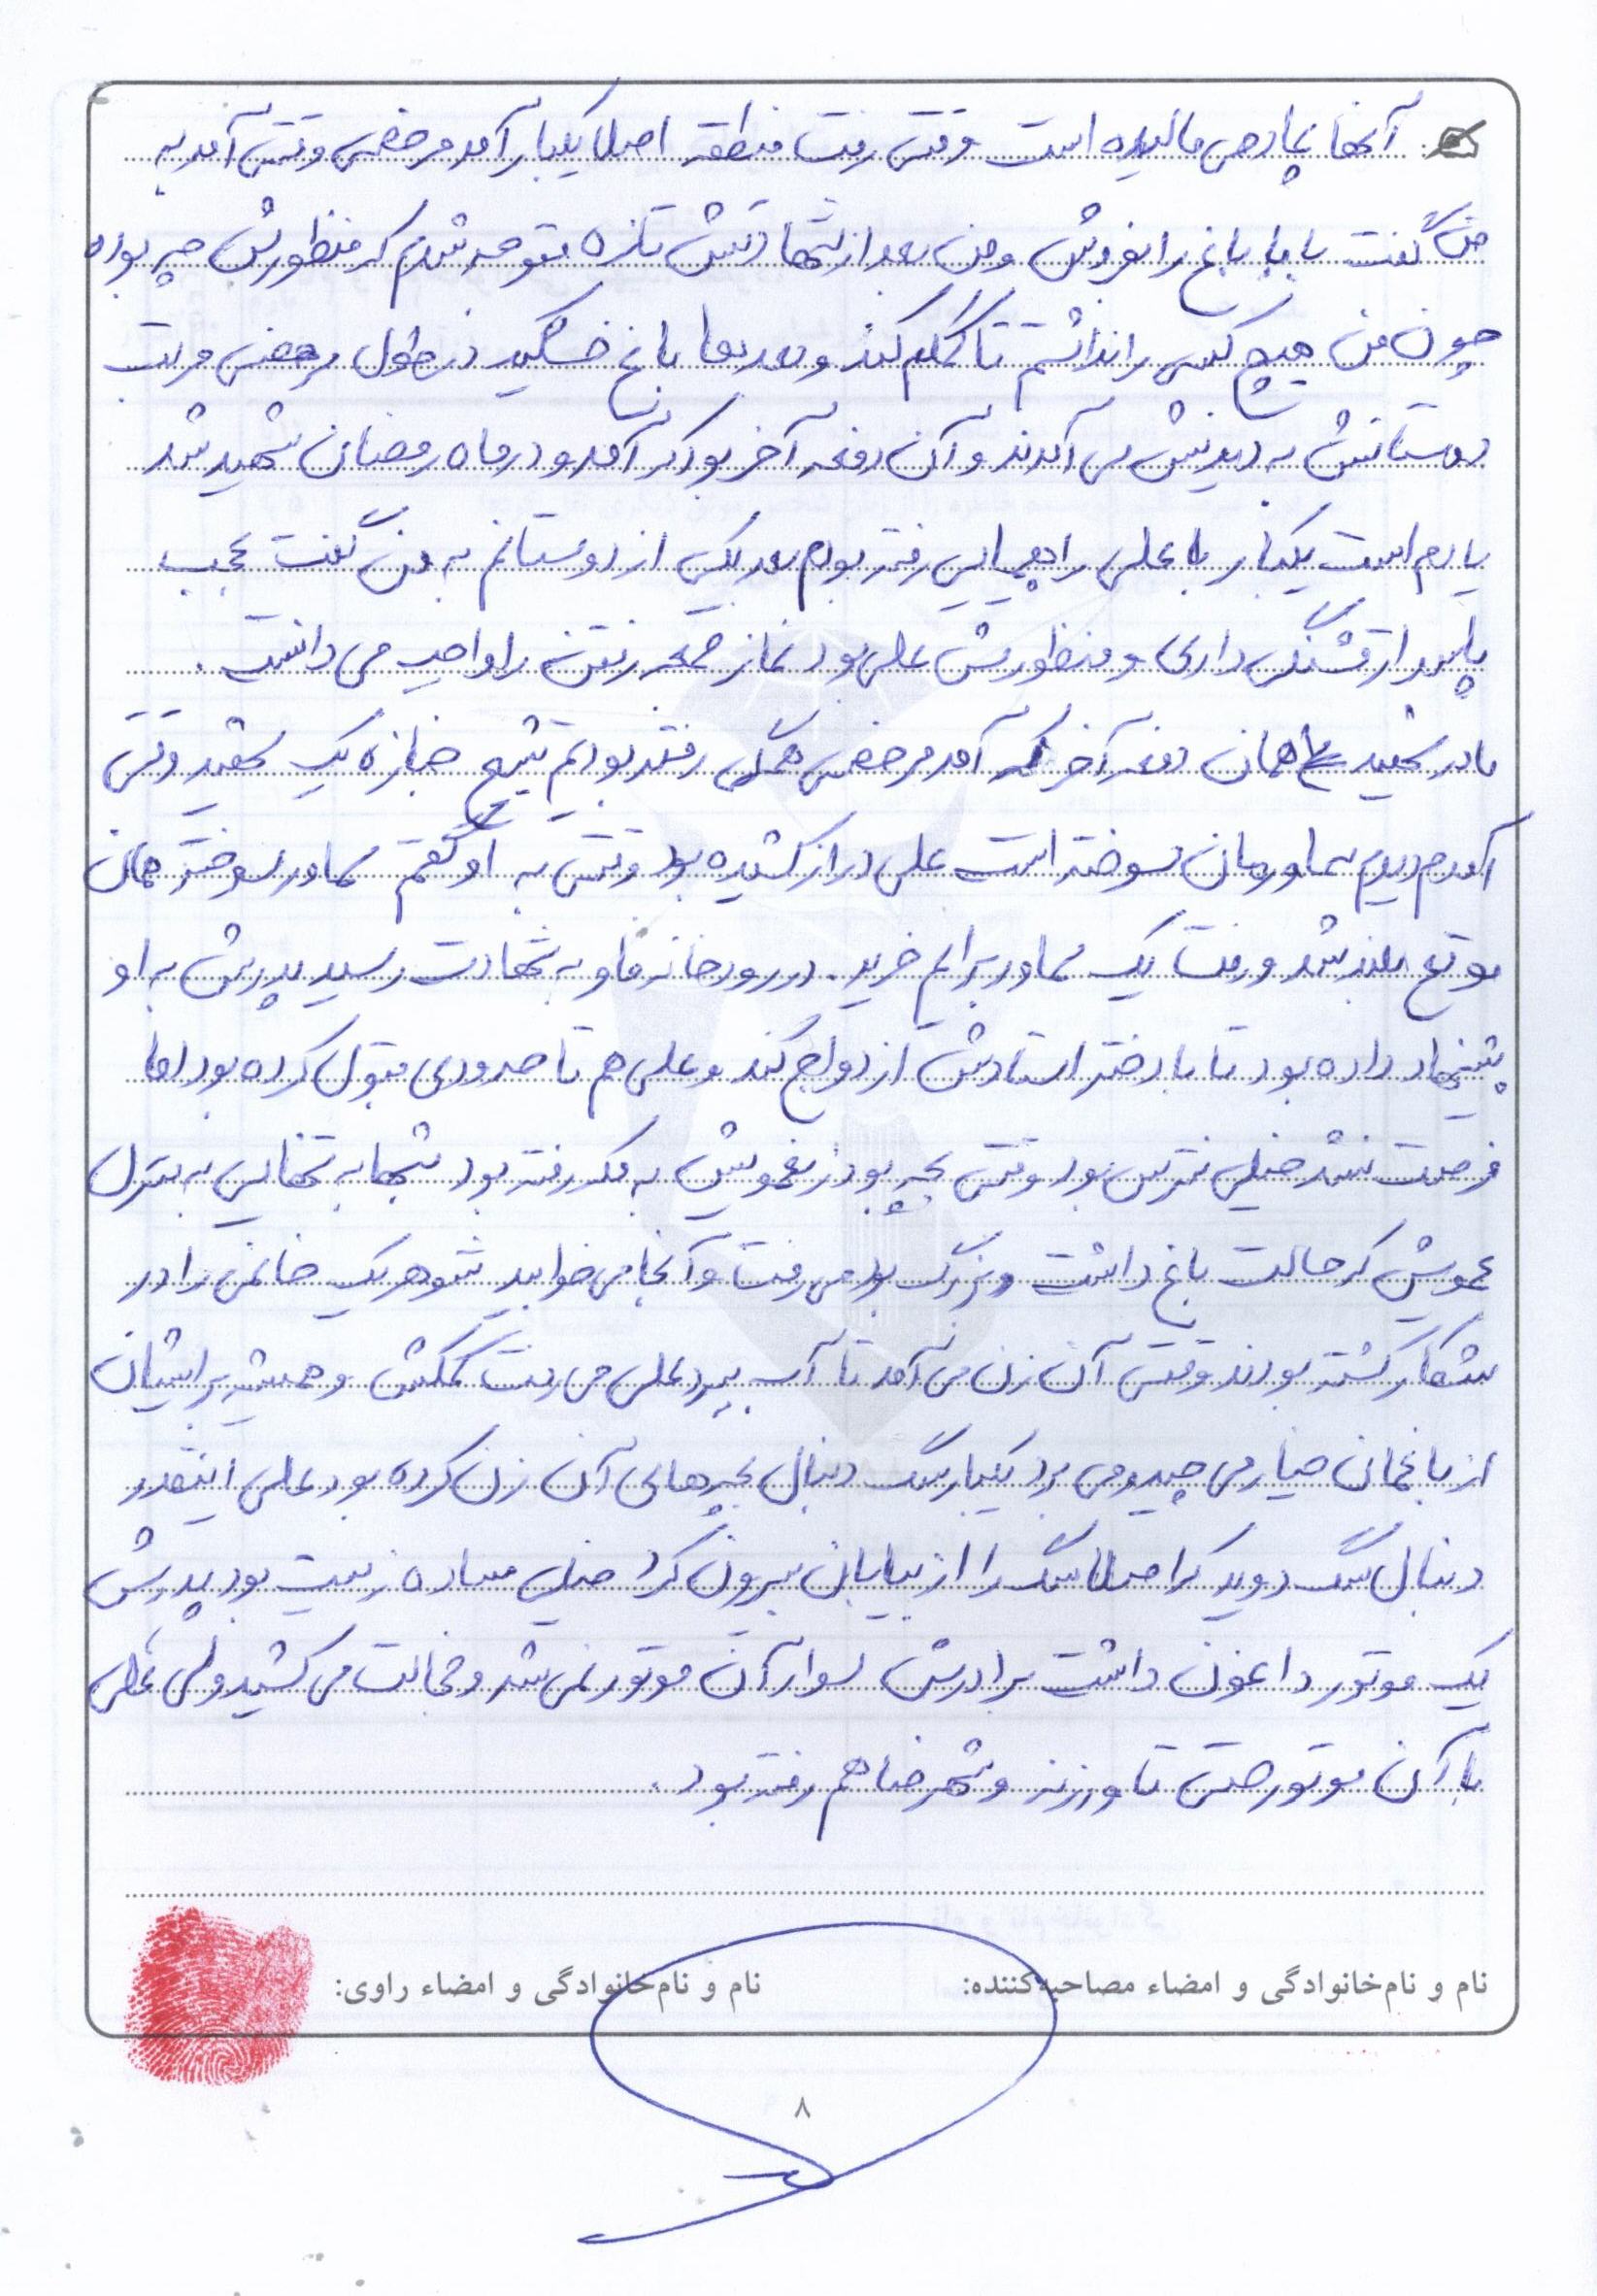 آنها پماد می مالیده است وقتی رفت منطقه اصلا یکبار آمد مرخصی وقتی آمد به
من گفت بابا باغ را بفروش و من بعد از شهادتش تازه متوجه شدم که منظورش چه بوده
چون من هیچ کسی را نداشتم تا کمکم کند و بعدها باغ خشکید در طول مرخصی مرتب
دوستانش به دیدنش می آمدند و آن دفعه آخر بود که آمد و در ماه رمضان شهید شد
یادم است یکبار با علی راهپیمایی رفته بودم بعد یکی از دوستانم به من گفت عجب
پاسدار قشنگی داری و منظورش علی بود نماز جمعه رفتن را واجب می دانست.
مادر شهید همان دفعه آخر که آمد مرخصی همگی رفته بودیم تشیع جنازه یک شهید وقتی
آمدم دیدم سماورمان سوخته است علی دراز کشیده بود وقتی به او گفتم سماور سوخته همان
موقع بلند شد و رفت یک سماور برایم خرید. در رودخانه ماو به شهادت رسید پدرش به او
پیشنهاد داده بود تا با دختر استادش ازدواج کند و علی هم تا حدودی قبول کرده بود اما
فرصت نشد خیلی نترس بود وقتی بچه بود زنعمویش به مکه رفته بود شبها به تنهایی به منزل
عمویش که حالت باغ داشت و بزرگ بود می رفت و آنجا می خوابید شوهر یک خانمی را در
شکار کشته بودند وقتی آن زن می آمد تا آب ببرد علی می رفت کمکش و همیشه برایشان
از باغمان خیار می چید و می برد یکبار سگ دنبال بچه های آن زن کرده بود علی اینقدر
دنبال سگ دوید که اصلا سگ را از بیابان بیرون کرد خیلی ساده زیست بود پدرش
یک موتور داغون داشت برادرش سوار آن موتور نمی شد و خجالت می کشید ولی علی
با آن موتور حتی تا ورزنه و شهرضا هم رفته بود.
نام و نام‌خانوادگی و امضاء مصاحبه‌کننده: نام و نام‌خانوادگی و امضاء راوی:
۸